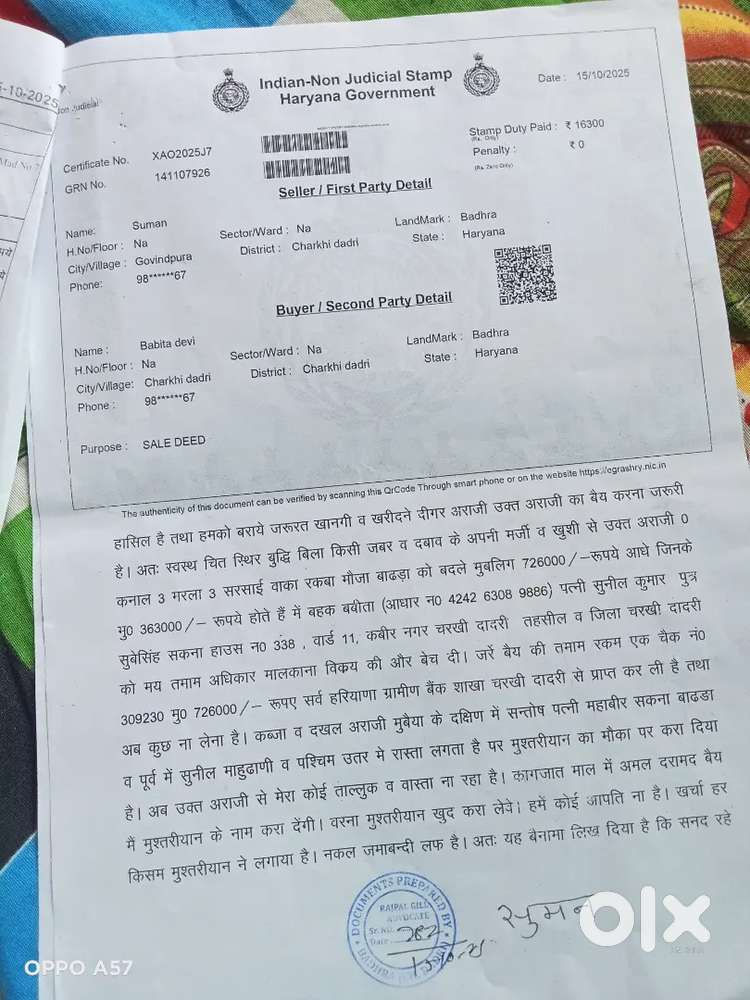 5-10-2025
Indian-Non Judicial Stamp
Haryana Government
Date : 15/10/2025
Certificate No. XAO2025J7
GRN No. 141107926
Stamp Duty Paid : ₹ 16300
(Rs. Only)
Penalty : ₹ 0
(Rs. Zero Only)
Seller / First Party Detail
Name: Suman
H.No/Floor : Na Sector/Ward : Na LandMark : Badhra
City/Village : Govindpura District : Charkhi dadri State : Haryana
Phone: 98******67
Buyer / Second Party Detail
Name : Babita devi
H.No/Floor : Na Sector/Ward : Na LandMark : Badhra
City/Village: Charkhi dadri District : Charkhi dadri State : Haryana
Phone : 98******67
Purpose : SALE DEED
The authenticity of this document can be verified by scanning this QrCode Through smart phone or on the website https://egrashry.nic.in
हासिल है तथा हमको बराये जरूरत खानगी व खरीदने दीगर अराजी उक्त अराजी का बैय करना जरूरी
है। अतः स्वस्थ चित स्थिर बुद्धि बिला किसी जबर व दबाव के अपनी मर्जी व खुशी से उक्त अराजी 0
कनाल 3 मरला 3 सरसाई वाका रकबा मौजा बाढड़ा को बदले मुबलिग 726000/-रूपये आधे जिनके
मु0 363000/- रूपये होते हैं में बहक बबीता (आधार न0 4242 6308 9886) पत्नी सुनील कुमार पुत्र
सुबेसिंह सकना हाउस न0 338 , वार्ड 11, कबीर नगर चरखी दादरी तहसील व जिला चरखी दादरी
को मय तमाम अधिकार मालकाना विक्रय की और बेच दी। जरें बैय की तमाम रकम एक चैक नं0
309230 मु0 726000/- रूपए सर्व हरियाणा ग्रामीण बैंक शाखा चरखी दादरी से प्राप्त कर ली है तथा
अब कुछ ना लेना है। कब्जा व दखल अराजी मुबैया के दक्षिण में सन्तोष पत्नी महाबीर सकना बाढडा
व पूर्व में सुनील माहुढाणी व पश्चिम उतर मे रास्ता लगता है पर मुश्तरीयान का मौका पर करा दिया
है। अब उक्त अराजी से मेरा कोई ताल्लुक व वास्ता ना रहा है। कागजात माल में अमल दरामद बैय
मैं मुश्तरीयान के नाम करा देंगी। वरना मुश्तरीयान खुद करा लेवे। हमें कोई आपति ना है। खर्चा हर
किसम मुश्तरीयान ने लगाया है। नकल जमाबन्दी लफ है। अतः यह बैनामा लिख दिया है कि सनद रहे
DOCUMENTS PREPARED BY
RAJPAL GILL
ADVOCATE
Sr. No. 282
Date
सुमन
olx
OPPO A57